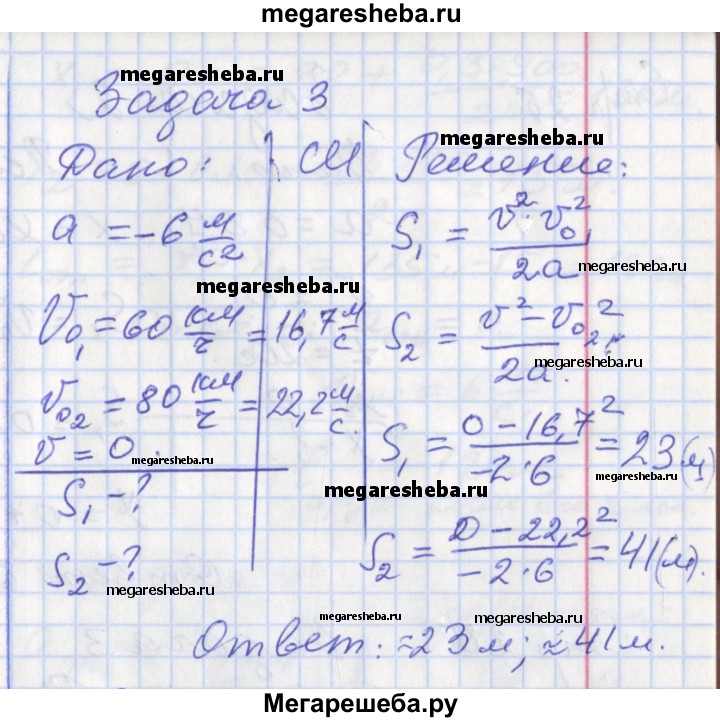 megaresheba.ru
megaresheba.ru
Задача 3
megaresheba.ru
Дано: СИ Решение:
a = -6 м/с²
S₁ = v² · v₀₁² / 2a
megaresheba.ru
megaresheba.ru
V₀₁ = 60 км/ч = 16,7 м/с
S₂ = v² - v₀₂² / 2a.
megaresheba.ru
v₀₂ = 80 км/ч = 22,2 м/с.
v = 0.
megaresheba.ru
S₁ = 0 - 16,7² / -2·6 = 23 (м)
megaresheba.ru
megaresheba.ru
S₁ - ?
S₂ - ?
megaresheba.ru
S₂ = 0 - 22,2² / -2·6 = 41 (м).
megaresheba.ru
megaresheba.ru
megaresheba.ru
Ответ: ≈23 м; ≈41 м.
megaresheba.ru
Мегарешеба.ру